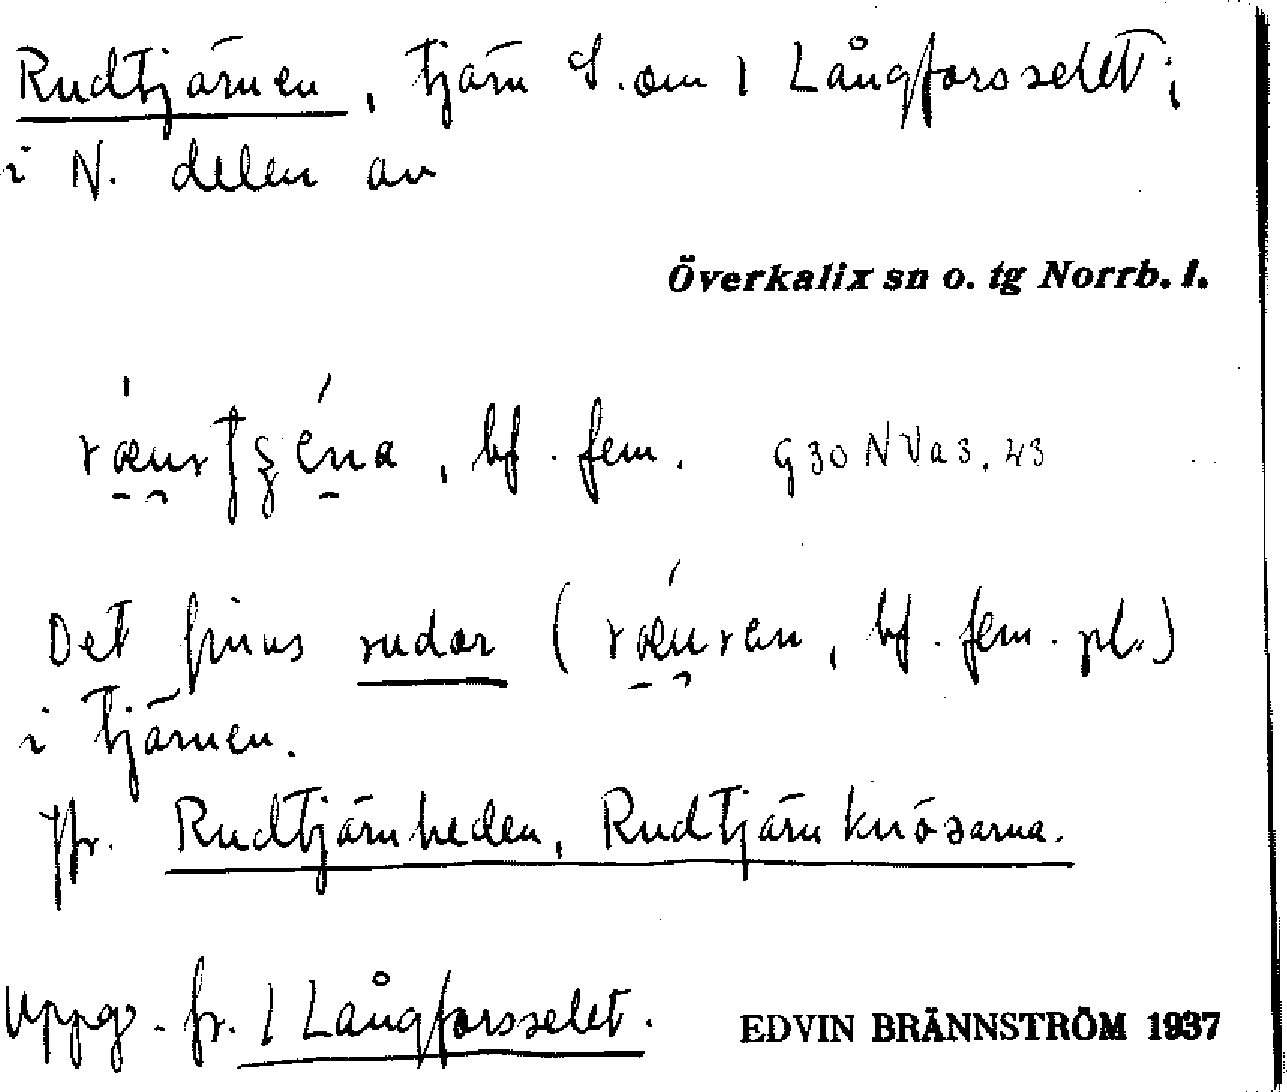 Rudtjärnen, tjärn S. om 1 Långforsselet;
i N. delen av
Överkalix sn o. tg Norrb. l.
bf. fem. G30 NVa3.43
Det finns rudor (bf. fem. pl.)
i tjärnen.
Jfr. Rudtjärnheden, Rudtjärnknösarna.
Uppg. fr. 1 Långforsselet.
EDVIN BRÄNNSTRÖM 1937